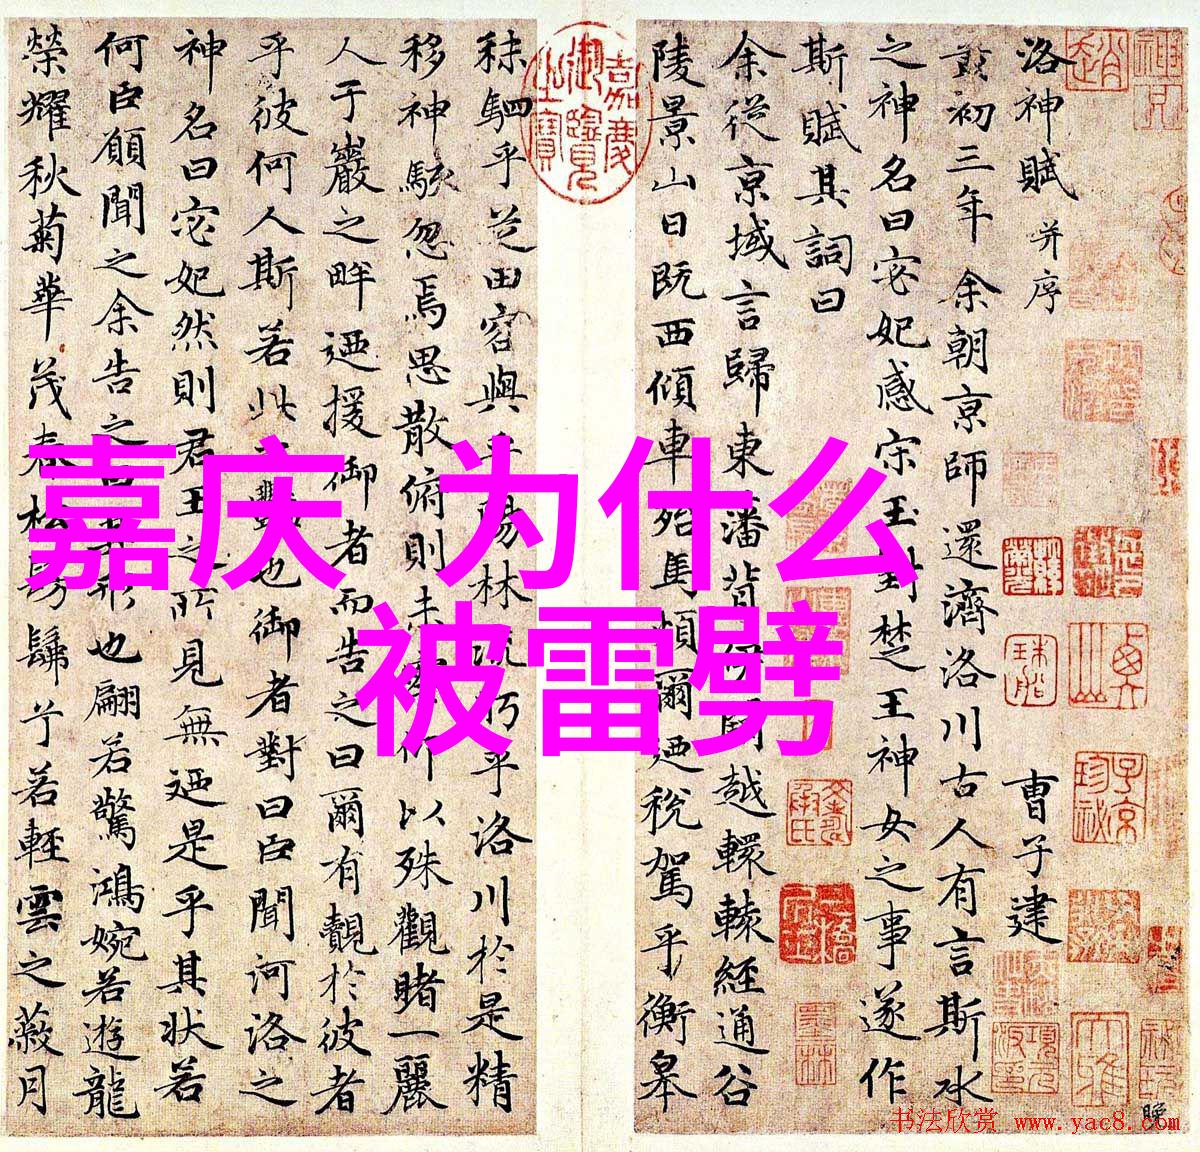 嘉庆 为什么
被雷劈
洛神賦 并序 曹子建
黃初三年余朝京師還濟洛川古人有言斯水
之神名曰宓妃感宋玉對楚王神女之事遂作
斯賦其詞曰
余從京域言歸東潘背伊闕越轘轅經通谷
陵景山日既西傾車殆馬煩爾迺稅駕乎衡皋
嘉慶御覽之寶
秣駟乎芝田容與乎陽林流眄乎洛川於是精
移神駭忽焉思散俯則未察仰以殊觀睹一麗
人于巖之畔迺援御者而告之曰爾有覿於彼者
乎彼何人斯若此之豔也御者對曰臣聞河洛之
神名曰宓妃然則君王之所見無迺是乎其狀若
何臣願聞之余告之曰其形也翩若驚鴻婉若遊龍
榮耀秋菊華茂春松髣髴兮若輕雲之蔽月
书法欣赏 www.yac8.com